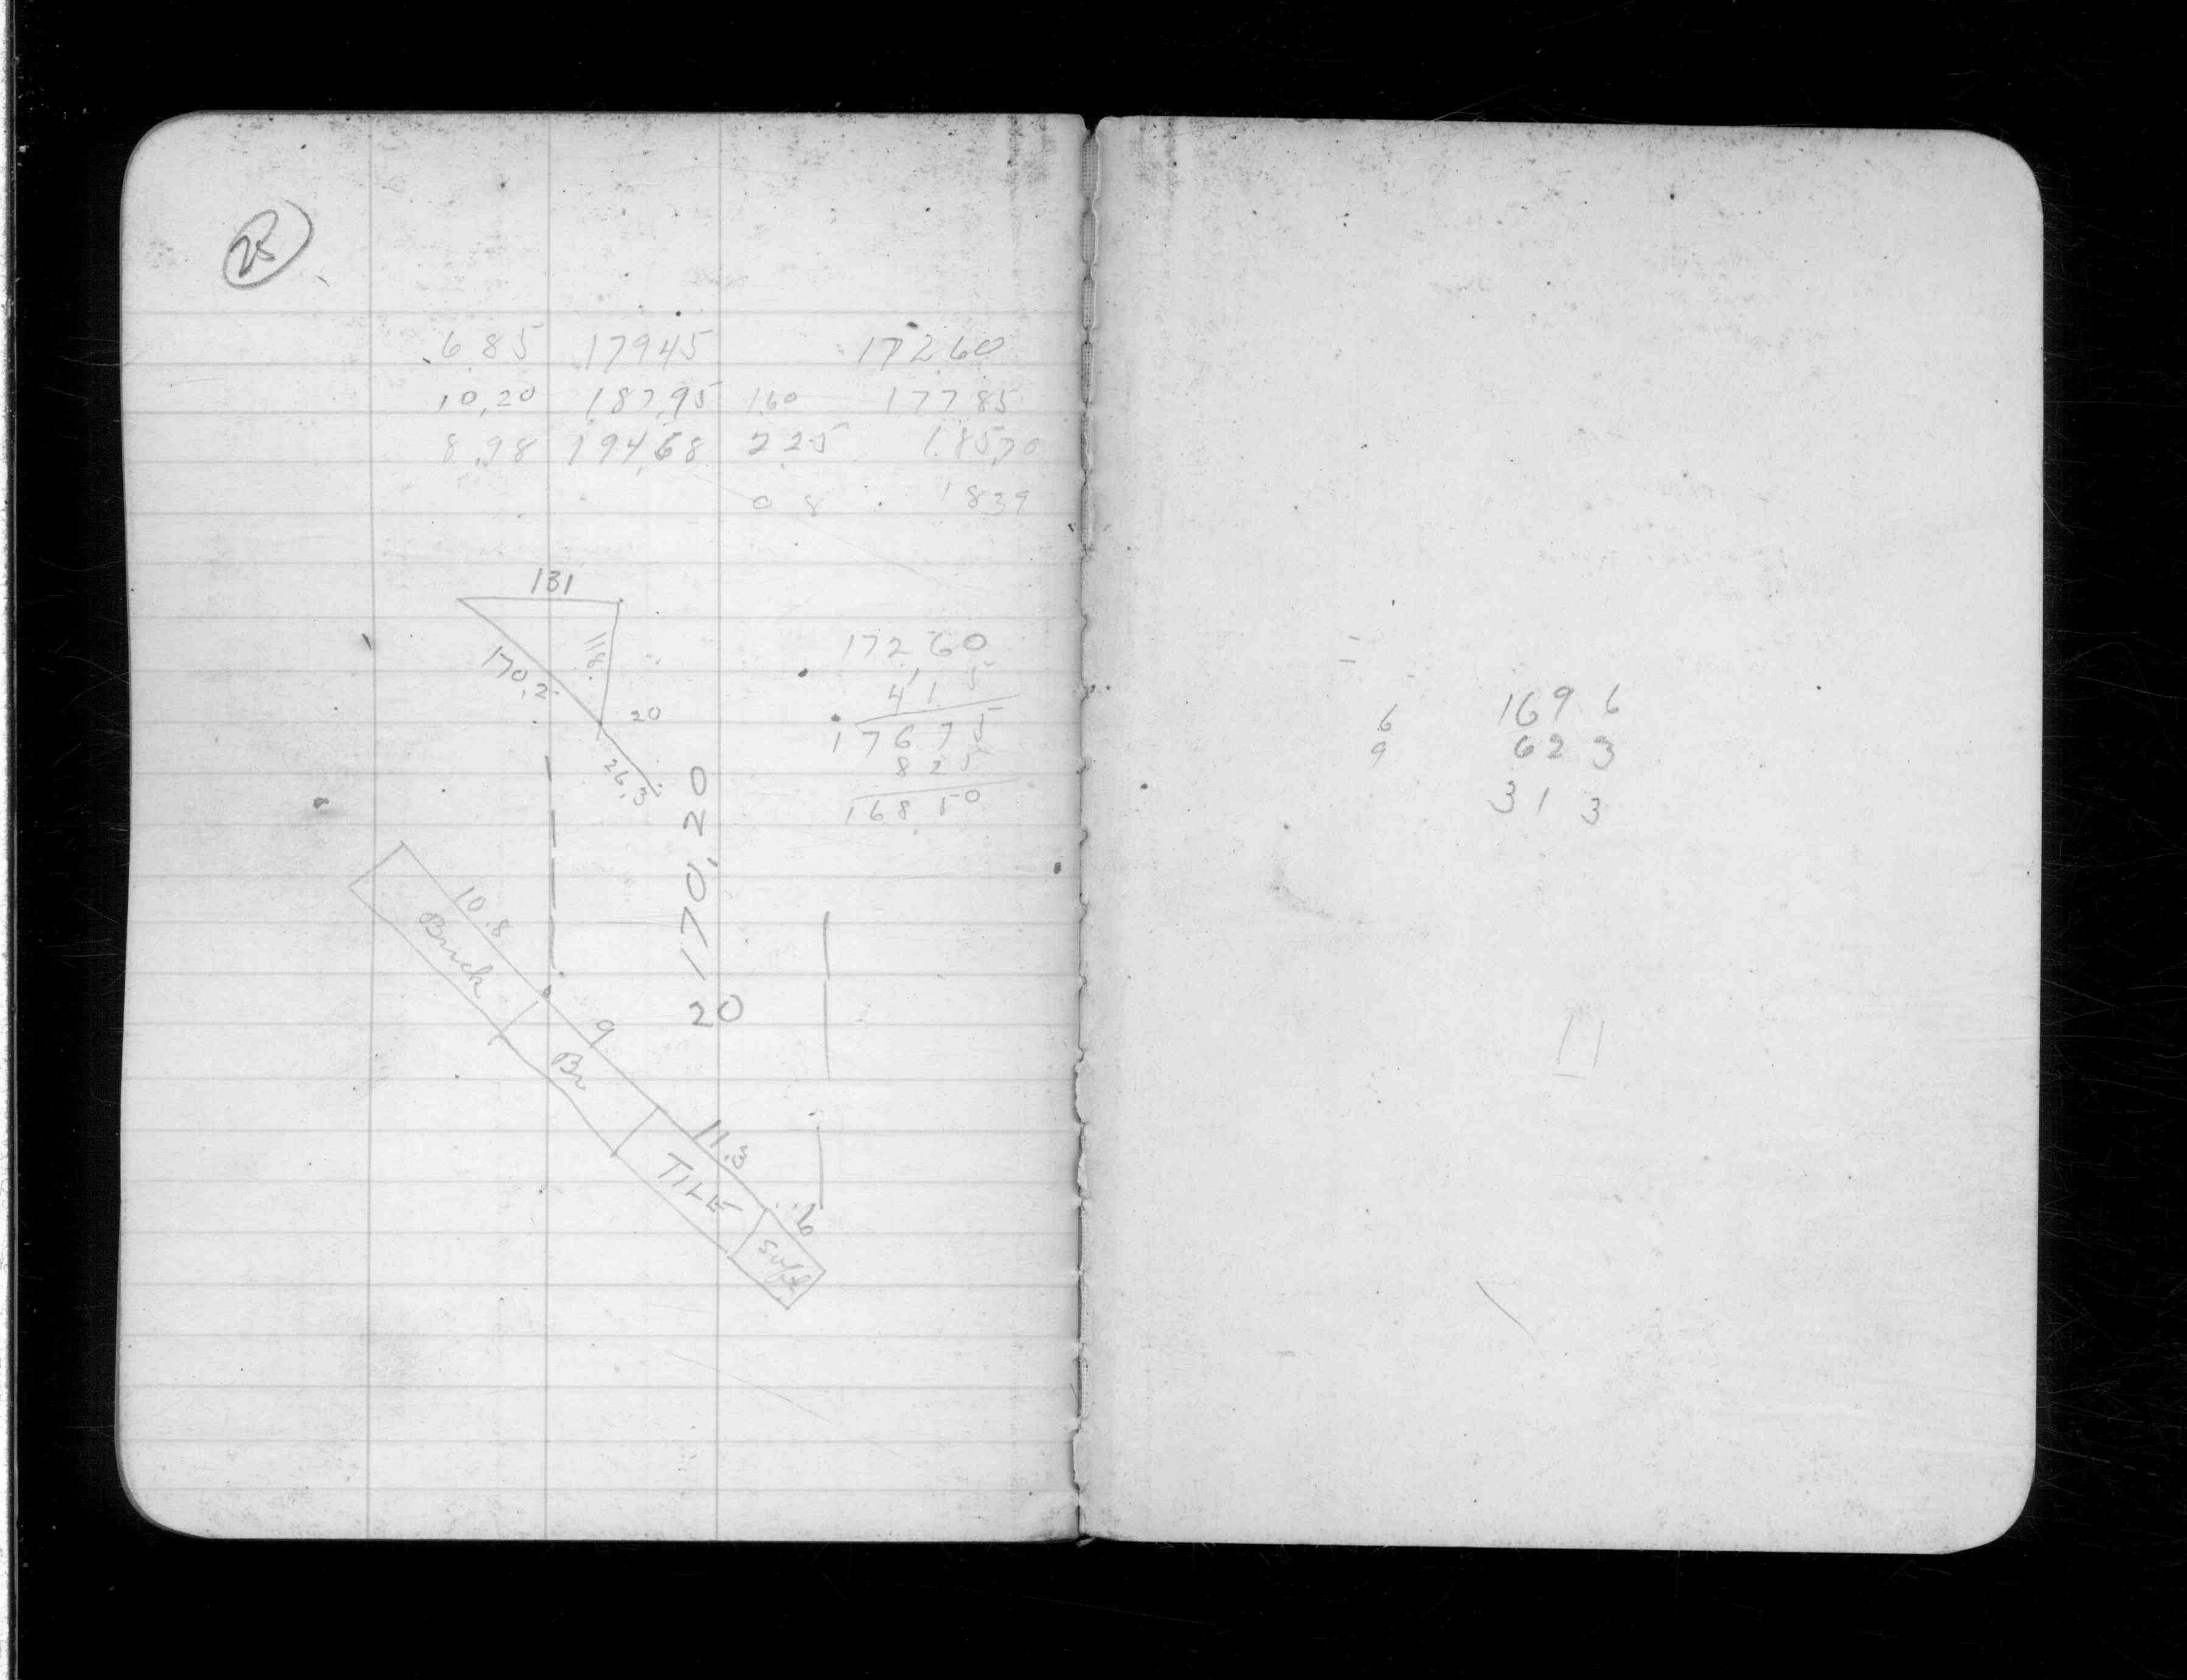 25
6 85 179 45 172 60
10,20 187,95 1 60 177 85
8,98 194,68 2 25 185,70
0 8 183 9
131
118
170,2
20
26,3
172,60
4 1 5
176 75
8 25
168 50
170,20
20
10.8
Brick
9
Br
11.3
TILE
6
169 6
6
62 3
9
31 3